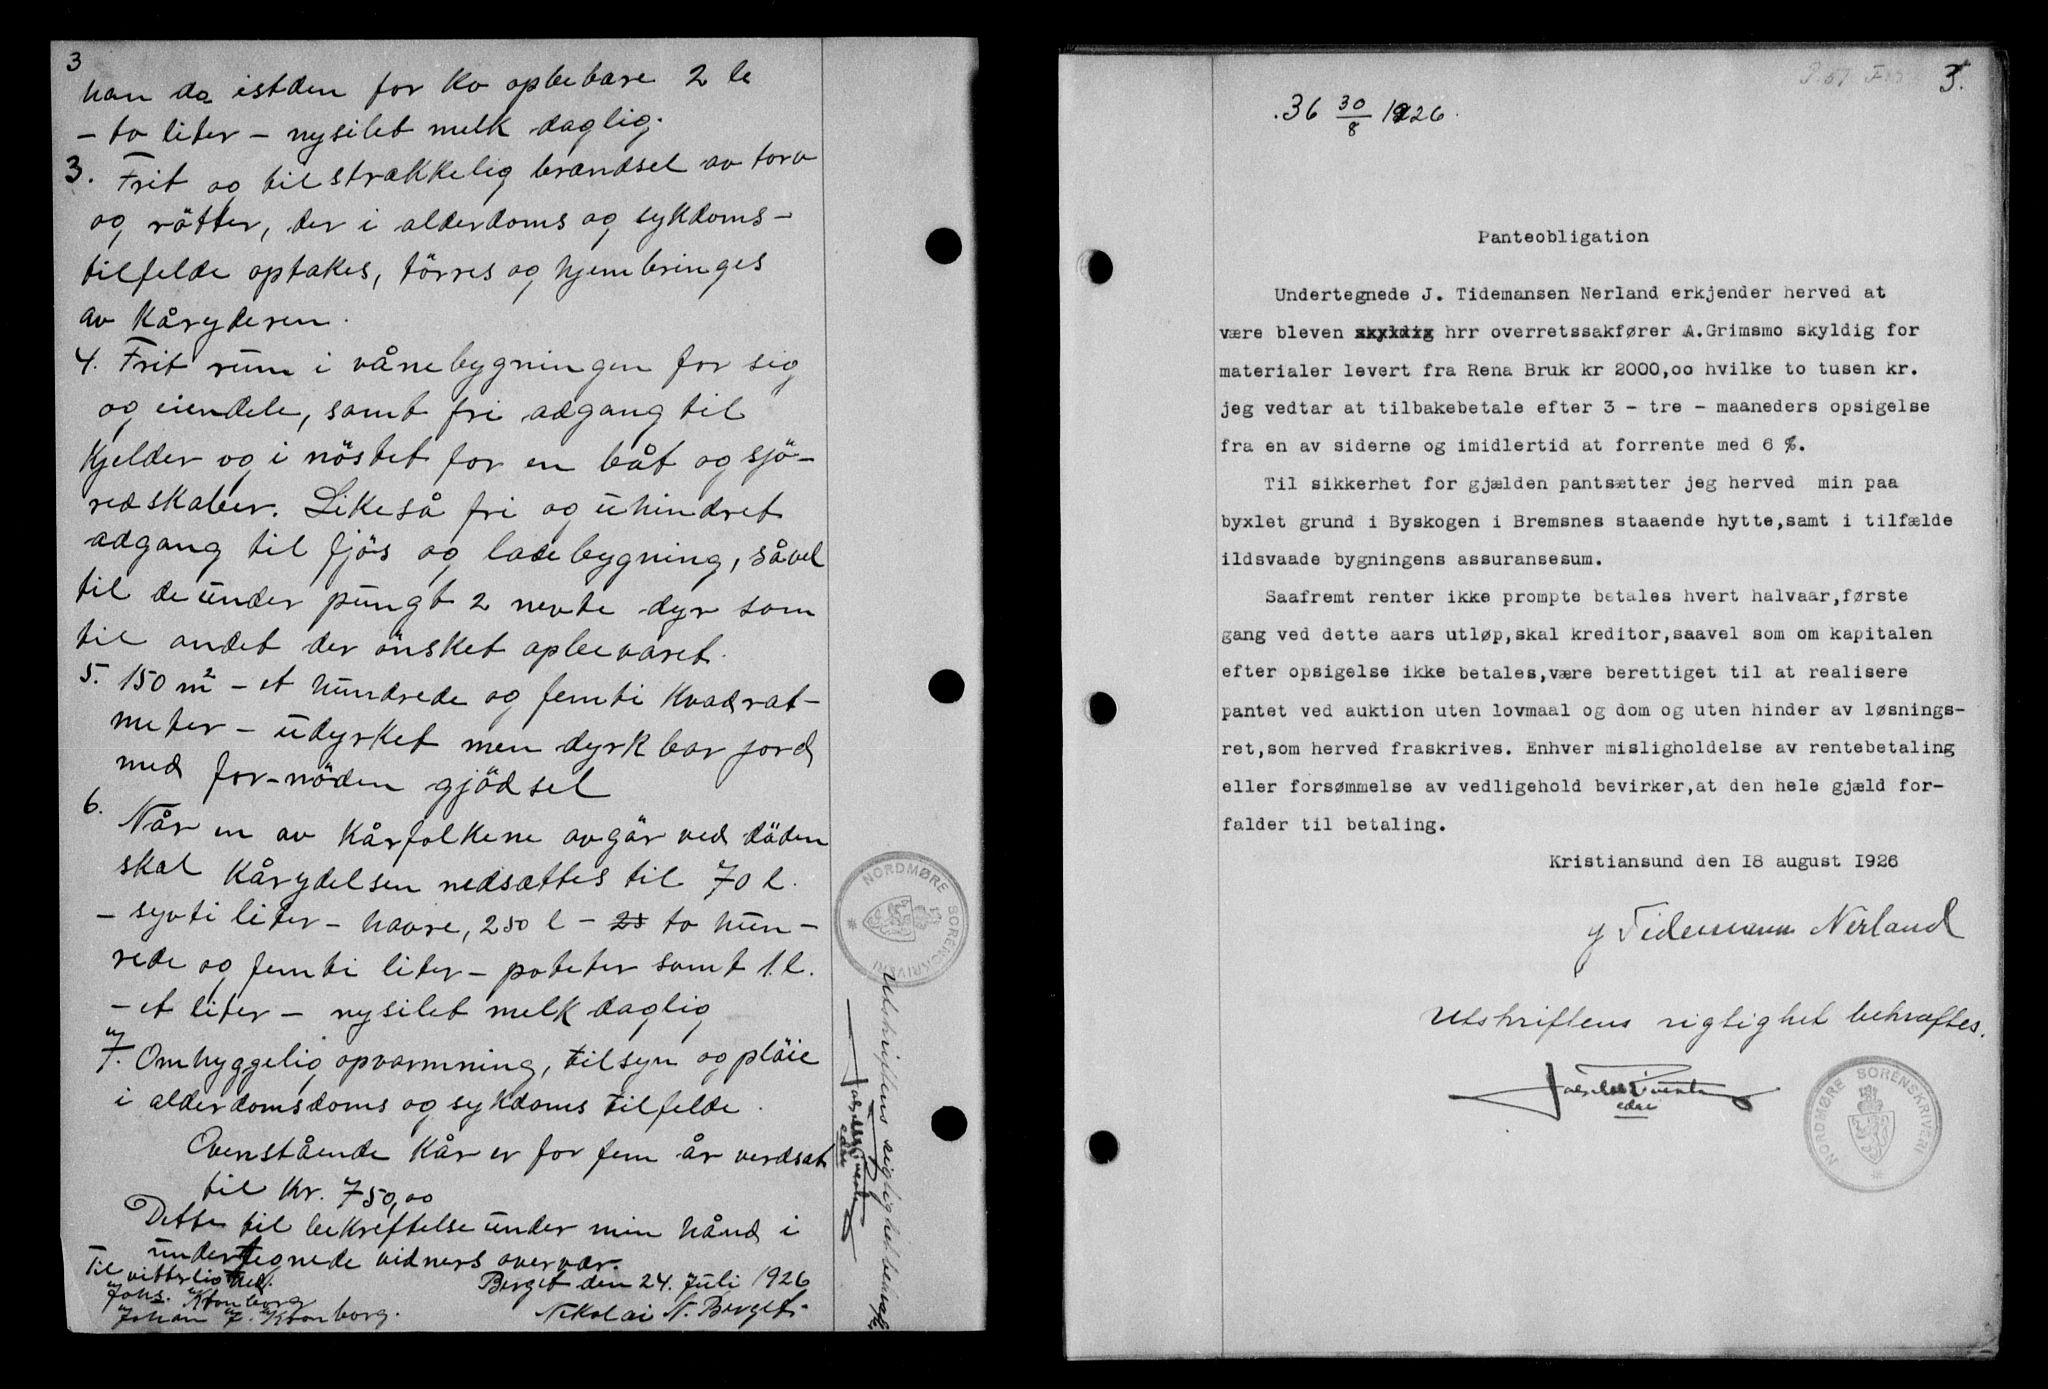 3
han da istden for ko opbebære 2 le
- to liter - nysilet melk daglig.
3. Frit og tilstrækkelig brændsel av torv
og rötter, der i alderdoms og sykdoms-
tilfelde optakes, törres og hjembringes
av Kåryderen.
4. Frit rum i vånebygningen for sig
og eiendele, samt fri adgang til
Kjelder og i nöstet for en båt og sjö-
redskaber. Likeså fri og uhindret
adgang til fjös og ladebygning, såvel
til de under pungt 2 nevte dyr som
til andet der önsket opbevaret.
5. 150 m² - et hundrede og femti Kvadrat-
meter - udyrket men dyrkbar jord
med for-nöden gjödsel
6. Når en av Kårfolkene avgår ved döden
skal Kårydelsen nedsættes til 70 l.
- sytti liter - havre, 250 l - 25 to hun-
rede og femti liter - poteter samt 1 l.
- et liter - nysilet melk daglig
7. Omhyggelig opvarmning, tilsyn og pläie
i alderdomsdoms og sykdoms tilfelde.
Ovenstående Kår er for fem år verdsat
til Kr. 750,00
Dette til bekreftelse under min hånd i
undertegnede vidners overvær.
Til vitterlighed.
Berget den 24. Juli 1926
Johs. Kvonborg
Nikolai N. Berget.
Johan J. Kvonborg.
NORDMØRE SORENSKRIVERI
Utskriftens rigtighet bekræftes
edsv
3.
36 30/8 1926.
Panteobligation
Undertegnede J. Tidemansen Nerland erkjender herved at
være bleven skyldig hrr overretssakfører A.Grimsmo skyldig for
materialer levert fra Rena Bruk kr 2000,oo hvilke to tusen kr.
jeg vedtar at tilbakebetale efter 3 - tre - maaneders opsigelse
fra en av siderne og imidlertid at forrente med 6 %.
Til sikkerhet for gjælden pantsætter jeg herved min paa
byxlet grund i Byskogen i Bremsnes staaende hytte,samt i tilfælde
ildsvaade bygningens assuransesum.
Saafremt renter ikke prompte betales hvert halvaar,første
gang ved dette aars utløp,skal kreditor,saavel som om kapitalen
efter opsigelse ikke betales,være berettiget til at realisere
pantet ved auktion uten lovmaal og dom og uten hinder av løsnings-
ret,som herved fraskrives. Enhver misligholdelse av rentebetaling
eller forsømmelse av vedligehold bevirker,at den hele gjæld for-
falder til betaling.
Kristiansund den 18 august 1926
J Tidemann Nerland
Utskriftens rigtighet bekræftes.
edsv
NORDMØRE SORENSKRIVERI